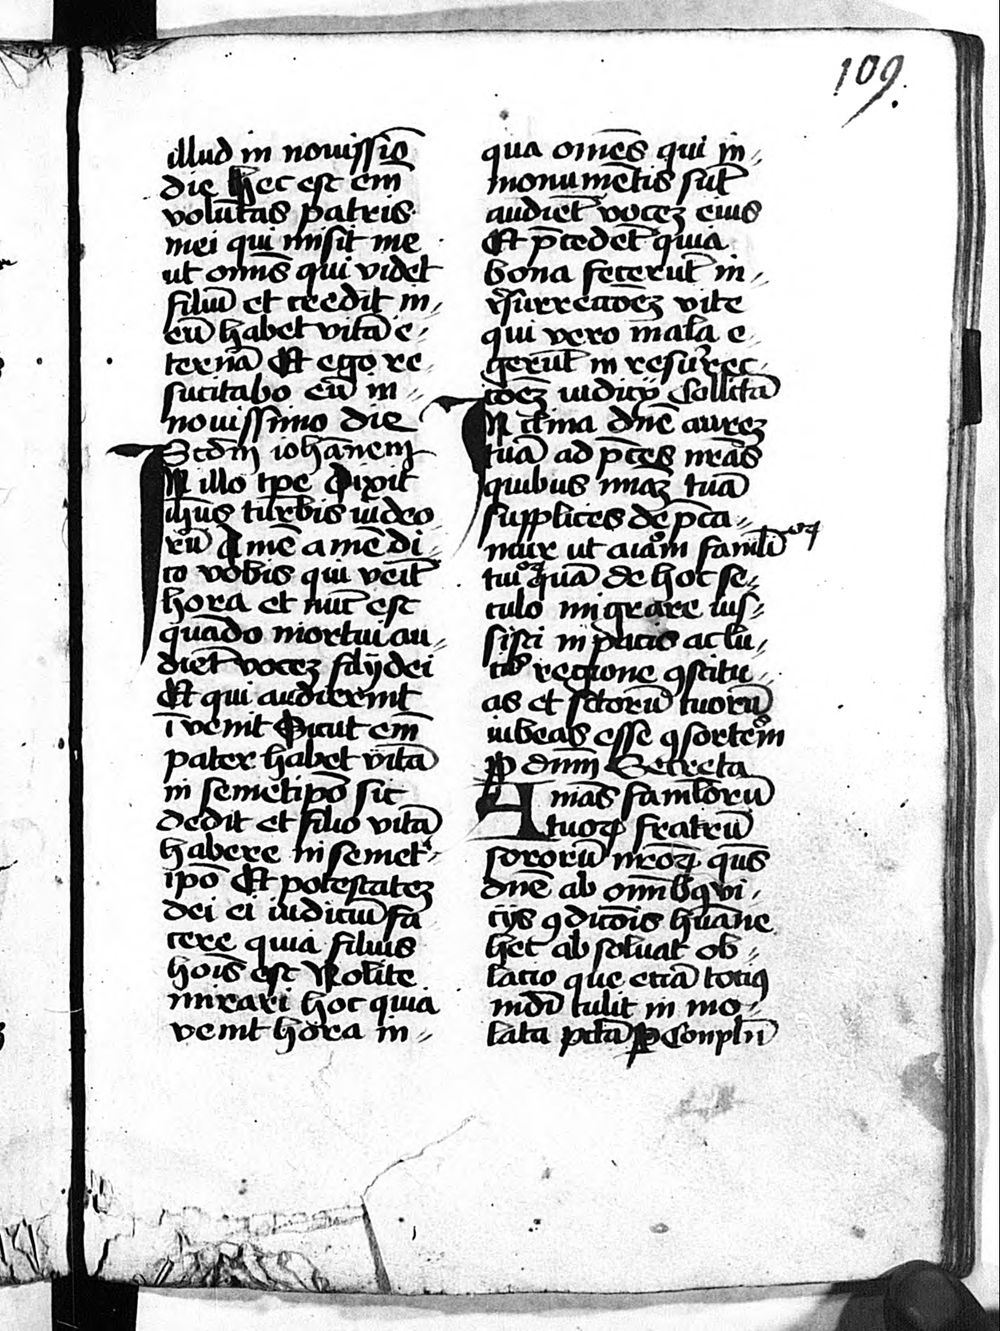 109.
illud in nouissiō
die Hec est em̄
volūtas patris
mei qui misit me
ut omīs qui videt
filiū et credit in
eū habet vitā e
ternā Et ego re
sucitabo eū in
nouissimo die
Scdm̄ iohānem
IN illo tpe Dixit
ihūs turbis iudeo
rū Amē amē di
co vobis qui veīt
hora et nūc est
quādo mortui au
diēt vocez filij dei
Et qui audierint
īvenīt Sicut em̄
pater habet vitā
in semetipō sic
dedit et filio vitā
habere in semet
ipō Et potestatez
dei ei iudiciū fa
cere quia filius
hoīs est Nolite
mirari hoc quia
venit hora in
qua om̄es qui in
monumētis sūt
audiēt vocez eius
Et p̄cedēt quia
bona fecerūt in
rēsurrectōez vite
qui vero mala e
gerūt in resurrec
tōez iudicij Collctā
INclina dn̄e aurez
tuā ad p̄ces nr̄as
quibus miāz tuā
supplices dep̄ca
mur ut aīam famli
tui quā de hoc se
culo migrare ius
sisti in pacis ac lu
cis regione 9stitu
as et sctōrū tuorū
iubeas esse 9sortem
P dnm̄ Secreta
Anīas famlorū
tuoꝝ fratrū
sororū nr̄oꝝ qs̄
dn̄e ab omībꝯ vi
cijs 9dicōis hūane
hec absoluat ob
lacio que etiā totiꝯ
mdī tulit in mo
lata pctā P Conplū